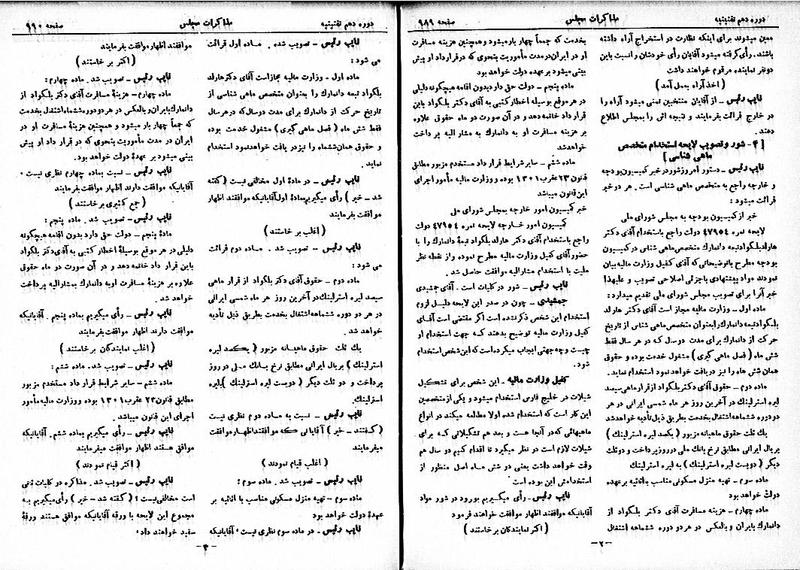 دوره دهم تقنینیه
مذاکرات مجلس
صفحه ۹۸۹
معین میشوند برای اینکه نظارت در استخراج آراء داشته
باشند. رأی گرفته میشود آقایان رأی خودشان را نسبت باین
دو نفر نماینده مرقوم خواهند داشت
(اخذ آراء بعمل آمد)
نایب رئیس - از آقایان منتخبین تمنی میشود آراء را
در خارج قرائت بفرمایند و نتیجه اش را بمجلس اطلاع
دهند.
[۴ - شور و تصویب لایحه استخدام متخصص
ماهی شناسی]
نایب رئیس - دستور امروز شور در خبر کمیسیون بودجه
و خارجه راجع به متخصص ماهی شناسی است. هر دو خبر
قرائت میشود:
خبر از کمیسیون بودجه به مجلس شورای ملی
لایحه نمره ۴۷۹۵۴ دولت راجع باستخدام آقای دکتر
هارلد بلکواد تبعه دانمارک متخصص ماهی شناس در کمیسیون
بودجه مطرح با توضیحاتی که آقای کفیل وزارت مالیه بیان
نمودند مواد پیشنهادی با جزئی اصلاحی تصویب و علیهذا
خبر آنرا برای تصویب مجلس شورای ملی تقدیم میدارد:
ماده اول - وزارت مالیه مجاز است آقای دکتر هارلد
بلکواد تبعه دانمارک را بعنوان متخصص ماهی شناس از تاریخ
حرکت از دانمارک برای مدت دو سال که در هر سال فقط
شش ماه (فصل ماهی گیری) مشغول خدمت بوده و حقوق
همان شش ماه را نیز دریافت خواهد نمود استخدام نماید.
ماده دوم - حقوق آقای دکتر بلکواد از قرار ماهی سیصد
لیره استرلینک در آخرین روز هر ماه شمسی ایرانی در هر
دو دوره ششماهه اشتغال بخدمت بطریق ذیل تأدیه خواهد شد
یک ثلث حقوق ماهیانه مزبور (یکصد لیره استرلینک)
بریال ایرانی مطابق نرخ بانک ملی در روز پرداخت و دو ثلث
دیگر (دویست لیره استرلینک) به لیره استرلینک
ماده سوم - تهیه منزل مسکونی مناسب با اثاثیه بر عهده
دولت خواهد بود
ماده چهارم - هزینه مسافرت آقای دکتر بلکواد از
دانمارک بایران و بالعکس در هر دو دوره ششماهه اشتغال
بخدمت که جمعاً چهار بار میشود و همچنین هزینه مسافرت
او در ایران در مدت مأموریت بنحوی که در قرارداد او پیش
بینی میشود بر عهده دولت خواهد بود
ماده پنجم - دولت حق دارد بدون اقامه هیچگونه دلیلی
در هر موقع بوسیله اخطار کتبی به آقای دکتر بلکواد باین
قرارداد خاتمه دهد و در آن صورت دو ماه حقوق علاوه
بر هزینه مسافرت او به دانمارک به مشارالیه پرداخت
خواهد شد
ماده ششم - سایر شرایط قرارداد مستخدم مزبور مطابق
قانون ۲۳ عقرب ۱۳۰۱ بوده و وزارت مالیه مأمور اجرای
این قانون میباشد
خبر کمیسیون امور خارجه بمجلس شورای ملی
کمیسیون امور خارجه لایحه نمره ۴۷۹۵۴ دولت
راجع باستخدام آقای دکتر هارلد بلکواد تبعهٔ دانمارک را با
حضور آقای کفیل وزارت مالیه مطرح نموده و از نقطه نظر
ملیت با استخدام مشارالیه موافقت حاصل شد.
نایب رئیس - شور در کلیات است. آقای جمشیدی
جمشیدی - چون در صدر این لایحه دلیل لزوم
استخدام این شخص ذکر نشده است اگر مقتضی است آقای
کفیل وزارت مالیه توضیح بدهند که جهت استخدام او
چیست و چه جهتی ایجاب میکرده است که این شخص استخدام
شود.
کفیل وزارت مالیه - این شخص برای تشکیل
شیلات در خلیج فارس استخدام میشود و یکی از متخصصین
این کار است که استخدام شده اولا مطالعه میکند در انواع
ماهیهائی که در آنجا هست و بعد هم تشکیلاتی که برای
شیلات لازم است در نظر میگیرد تا اقدام کنیم دو سال هم
وقت خواهد داشت یعنی در شش ماه اصل منظور از
استخدامش این بوده است.
نایب رئیس - رأی میگیریم بورود در شور مواد
آقایانیکه موافقند اظهار موافقت خواهند فرمود
(اکثر نمایندگان برخاستند)
-۲-
دوره دهم تقنینیه
مذاکرات مجلس
صفحه ۹۹۰
نایب رئیس - تصویب شد. ماده اول قرائت
می شود:
ماده اول - وزارت مالیه مجاز است آقای دکتر هارلد
بلکواد تبعه دانمارک را بعنوان متخصص ماهی شناسی از
تاریخ حرکت از دانمارک برای مدت دو سال که در هر سال
فقط شش ماه (فصل ماهی گیری) مشغول خدمت بوده
و حقوق همان ششماه را نیز دریافت خواهد نمود استخدام
نماید.
نایب رئیس - در مادهٔ اول مخالفتی نیست (گفته
شد - خیر) رأی میگیریم بمادهٔ اول آقایانیکه موافقند
موافقت بفرمایند
(اغلب برخاستند)
نایب رئیس - تصویب شد. ماده دوم قرائت
می شود:
ماده دوم - حقوق آقای دکتر بلکواد از قرار ماهی
سیصد لیره استرلینک در آخرین روز هر ماه شمسی ایرانی
در هر دو دوره ششماهه اشتغال بخدمت بطریق ذیل تأدیه
خواهد شد.
یک ثلث حقوق ماهیانه مزبور (یکصد لیره
استرلینک) بریال ایرانی مطابق نرخ بانک ملی در روز
پرداخت و دو ثلث دیگر (دویست لیره استرلینک) بلیره
استرلینک.
نایب رئیس - نسبت به ماده دوم نظری نیست
(گفتند - خیر) آقایانی که موافقند اظهار موافقت
میفرمایند
(اغلب قیام نمودند)
نایب رئیس - تصویب شد. ماده سوم:
ماده سوم - تهیه منزل مسکونی مناسب با اثاثیه بر
عهدهٔ دولت خواهد بود
نایب رئیس - در ماده سوم نظری نیست. آقایانیکه
موافقند اظهار موافقت بفرمایند
(اکثر برخاستند)
نایب رئیس - تصویب شد. ماده چهارم:
ماده چهارم - هزینهٔ مسافرت آقای دکتر بلکواد از
دانمارک بایران و بالعکس در هر دو دوره ششماهه اشتغال بخدمت
که جمعاً چهار بار میشود و همچنین هزینه مسافرت او در
ایران در مدت مأموریت بنحوی که در قرارداد او پیش
بینی میشود بر عهدهٔ دولت خواهد بود.
نایب رئیس - نسبت بماده چهارم نظری نیست.
آقایانیکه موافقت دارند اظهار موافقت بفرمایند
(جمع کثیری برخاستند)
نایب رئیس - تصویب شد. ماده پنجم:
ماده پنجم - دولت حق دارد بدون اقامه هیچگونه
دلیلی در هر موقع بوسیلهٔ اخطار کتبی به آقای دکتر بلکواد
باین قرارداد خاتمه دهد و در آن صورت دو ماه حقوق
علاوه بر هزینهٔ مسافرت او به دانمارک بمشارالیه پرداخت
خواهد شد.
نایب رئیس - رأی میگیریم بماده پنجم. آقایانیکه
موافقت دارند اظهار موافقت بفرمایند
(اغلب نمایندگان برخاستند)
نایب رئیس - تصویب شد. ماده ششم:
ماده ششم - سایر شرایط قرارداد مستخدم مزبور
مطابق قانون ۲۳ عقرب ۱۳۰۱ بوده و وزارت مالیه مأمور
اجرای این قانون میباشد.
نایب رئیس - رأی میگیریم بماده ششم. آقایانیکه
موافقت دارند اظهار موافقت بفرمایند
(اکثر قیام نمودند)
نایب رئیس - تصویب شد. مذاکره در کلیات ثانی
است مخالفی نیست؛ (گفته شد - خیر) رأی میگیریم به
مجموع این لایحه با ورقه آقایانیکه موافق هستند ورقهٔ
سفید خواهند داد.
-۳-